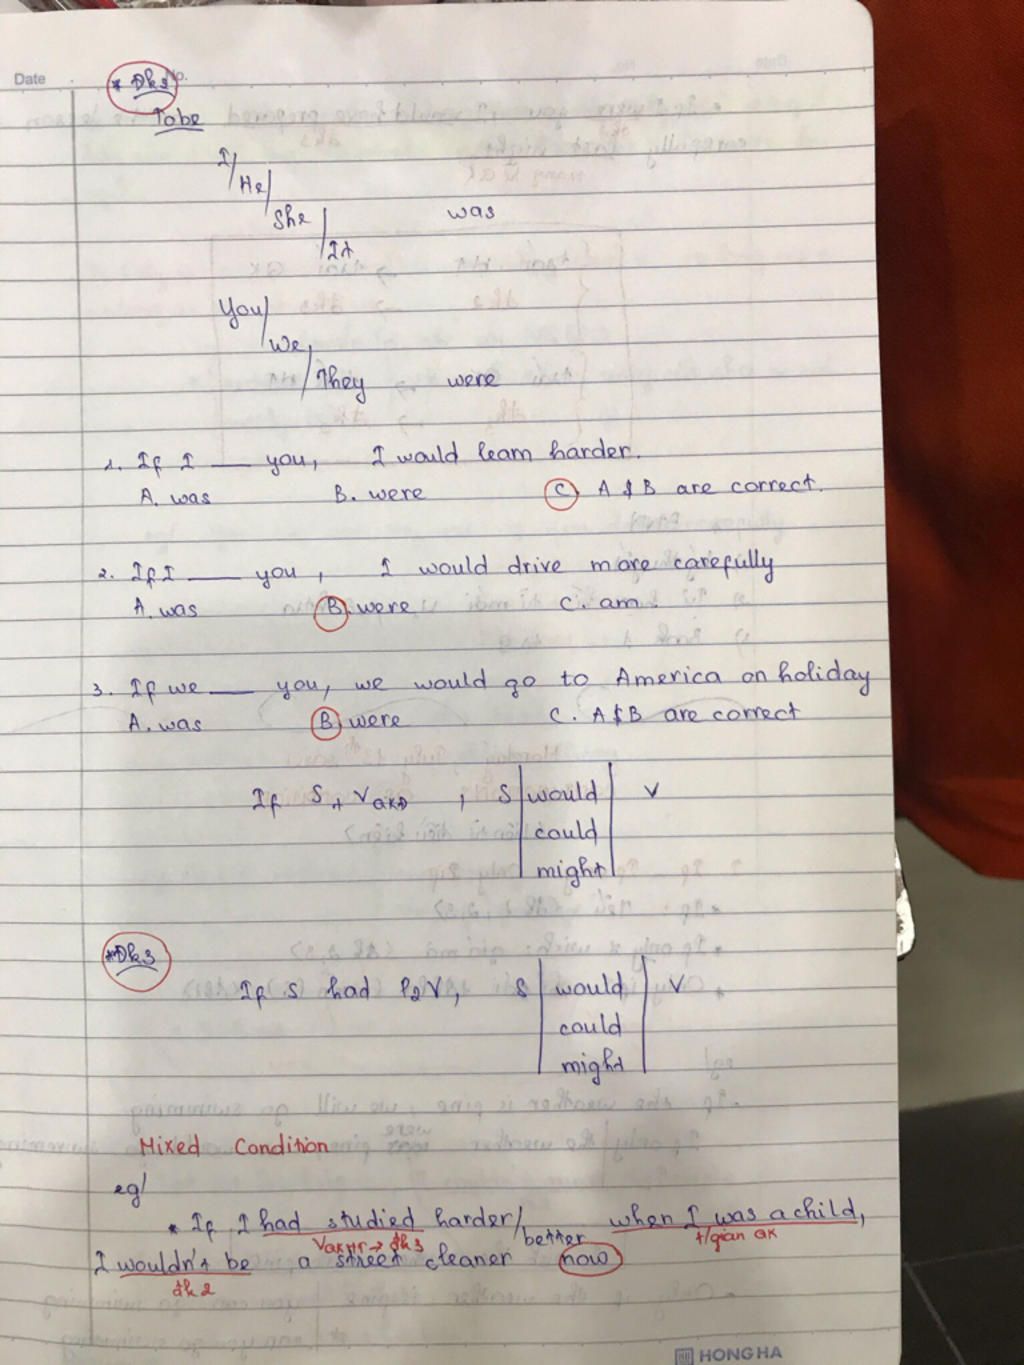 Date No.
* Đk3
Tobe
I/
He/
She/ was
It
You/
We/
They were
1. If I ___ you, I would learn harder.
A. was B. were C. A & B are correct.
2. If I ___ you, I would drive more carefully
A. was B. were C. am.
3. If we ___ you, we would go to America on holiday
A. was B. were C. A & B are correct
If S + VQKĐ, S would V
could
might
*Đk3
If S had P2V, S would V
could
might
Mixed Condition
eg/
* If I had studied harder/better when I was a child,
VQKHT → đk3 t/gian QK
I wouldn't be a street cleaner now
đk2
HONG HA